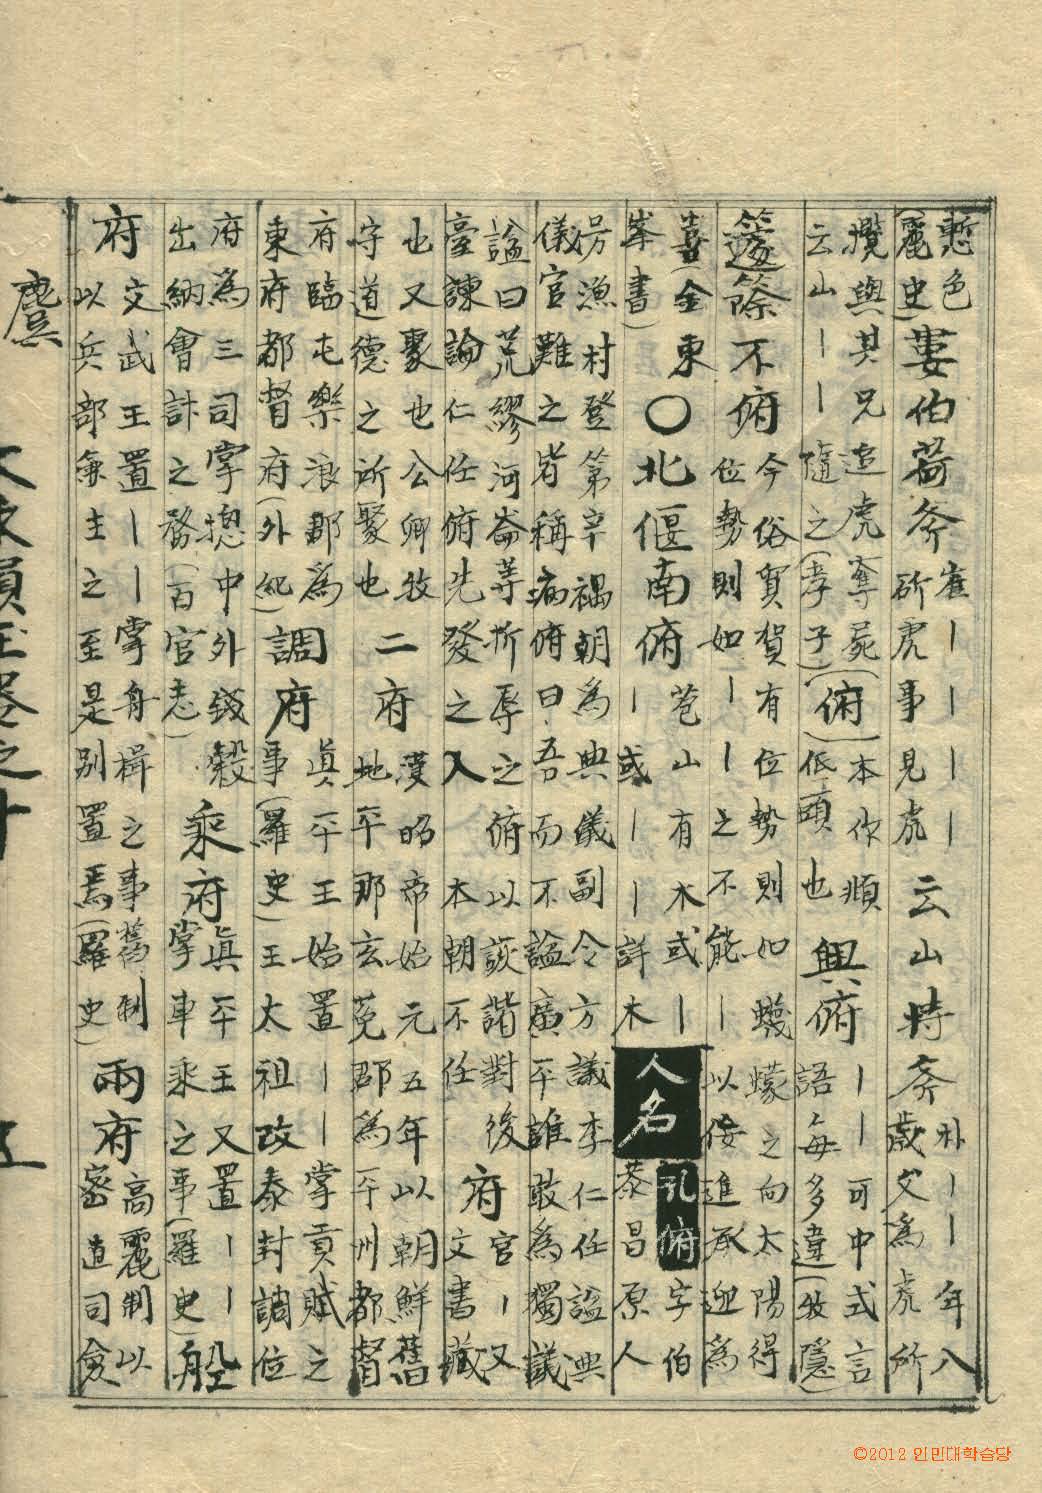 慙色
麗史)
婁伯荷斧
崔丨丨丨丨
斫虎事見虎
云山持斧
朴丨丨年八
歲父爲虎所
攬與其兄追虎奪屍
云山丨丨隨之(孝子)
(俯)
本作頫
低頭也
興俯
丨丨可中式言
語每多違(牧隱)
籧篨不俯
今俗賀有位勢則如蠛蠓之向太陽得
位勢則如丨丨之不能丨以侫進承迎爲
喜(金東
峯書)
○北偃南俯
苍山有木或丨
丨或丨丨詳木
人名
孔俯
字伯
恭昌原人
号漁村登第辛禑朝爲典儀副令方議李仁任諡典
儀官難之皆稱病俯曰吾而不諡廣平誰敢爲獨議
諡曰荒繆河崙等折辱之俯以詼諧對後
臺諫論仁任俯先發之入本朝不任
府
官丨又
文書藏
也又聚也公卿牧
守道德之所聚也
二府
漢昭帝始元五年以朝鮮舊
地平那玄菟郡爲平州都督
府臨屯樂浪郡爲
東府都督府(外紀)
調府
眞平王始置丨丨掌貢賦之
事(羅史)王太祖改泰封調位
府爲三司掌摠中外錢穀
出納會計之務(百官志)
乘府
眞平王又置丨丨
掌車乘之事(羅史)
船
府
文武王置丨丨掌舟楫之事舊制
以兵部兼主之至是別置焉(羅史)
兩府
高麗制以
密直司僉
麌
大東韻玉卷之十
五
©2012 인민대학습당